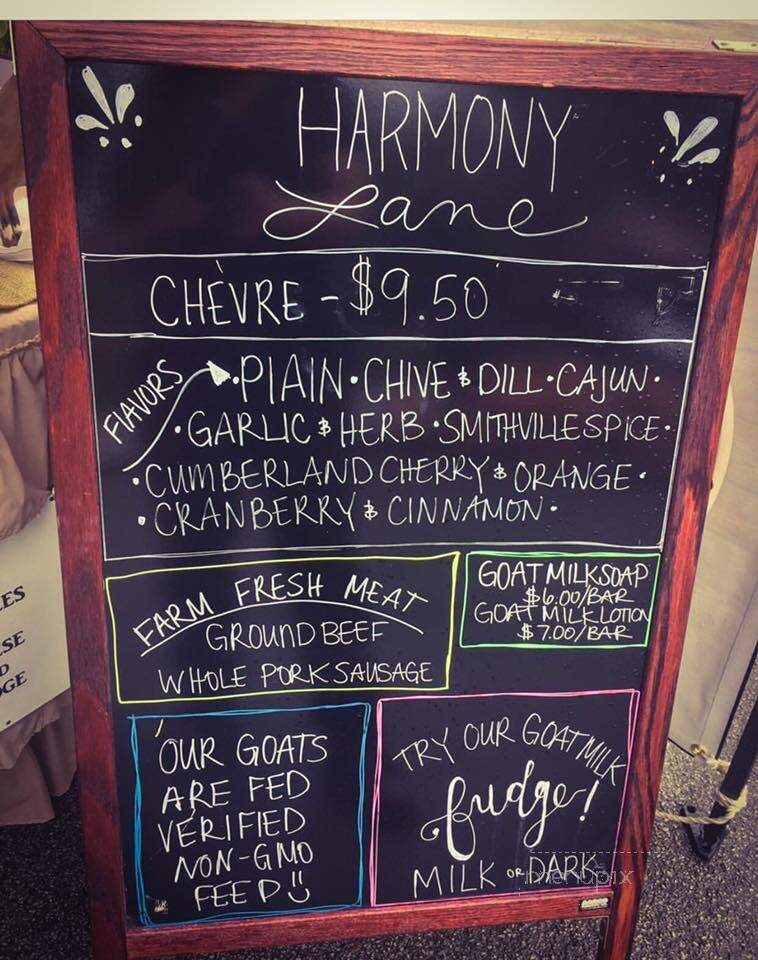 HARMONY
Lane
CHÈVRE - $9.50
FLAVORS
• PLAIN • CHIVE & DILL • CAJUN •
• GARLIC & HERB • SMITHVILLE SPICE •
• CUMBERLAND CHERRY & ORANGE •
• CRANBERRY & CINNAMON •
FARM FRESH MEAT
GROUND BEEF
WHOLE PORK SAUSAGE
GOAT MILK SOAP
$6.00/BAR
GOAT MILK LOTION
$7.00/BAR
OUR GOATS
ARE FED
VERIFIED
NON-GMO
FEED
TRY OUR GOAT MILK
fudge!
MILK OR DARK
menupix